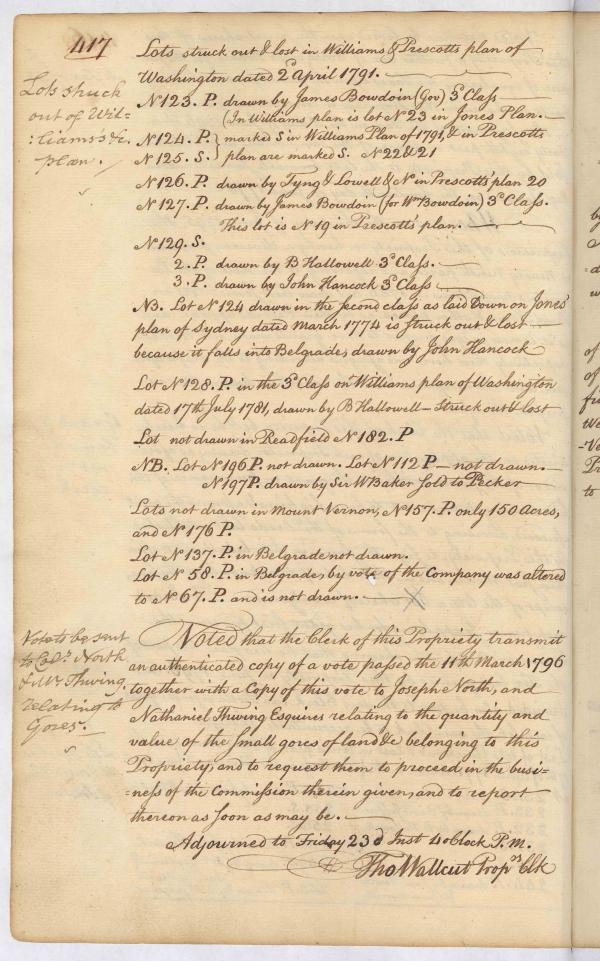 417
Lots struck out & lost in Williams & Prescotts plan of
Washington dated 2d April 1791.
Lots struck
out of Wil=
:liams's &c.
plan.
N 123. P. drawn by James Bowdoin (Gov) 3d Class
(In Williams plan is lot N 23 in Jones Plan.
N 124. P. } marked S in Williams Plan of 1791, & in Prescotts
N 125. S. } plan are marked S. N 22 & 21
N 126. P. drawn by Tyng & Lowell & N in Prescotts plan 20
N 127. P. drawn by James Bowdoin (for Wm Bowdoin) 3d Class.
This lot is N 19 in Prescott's plan.
N 129. S.
2. P. drawn by B Hallowell 3d Class.
3. P. drawn by John Hancock 3d Class
NB. Lot N 124 drawn in the Second class as laid Down on Jones'
plan of Sydney dated March 1774 is Struck out & lost
because it falls into Belgrade, drawn by John Hancock
Lot N 128. P. in the 3d Class on Williams plan of Washington
dated 17th July 1781, drawn by B Hallowell - Struck out & lost
Lot not drawn in Readfield N 182. P
NB. Lot N 196 P. not drawn. Lot N 112 P - not drawn.
N 197 P. drawn by Sir W Baker Sold to Pecker
Lots not drawn in Mount Vernon, N 157. P. only 150 Acres,
and N 176 P.
Lot N 137. P. in Belgrade not drawn.
Lot N 58. P. in Belgrade, by vote of the Company was altered
to N 67. P. and is not drawn.
Vote to be sent
to Colo. North
& Mr Thwing
relating to
Gores.
Voted that the Clerk of this Propriety transmit
an authenticated copy of a vote passed the 11th March 1796
together with a Copy of this vote to Joseph North, and
Nathaniel Thwing Esquires relating to the quantity and
value of the Small gores of land &c belonging to this
Propriety, and to request them to proceed in the busi=
=ness of the Commission therein given, and to report
thereon as Soon as may be.
Adjourned to Friday 23d Inst 4 oClock P.M.
Tho Wallcut Prop.rs Clk